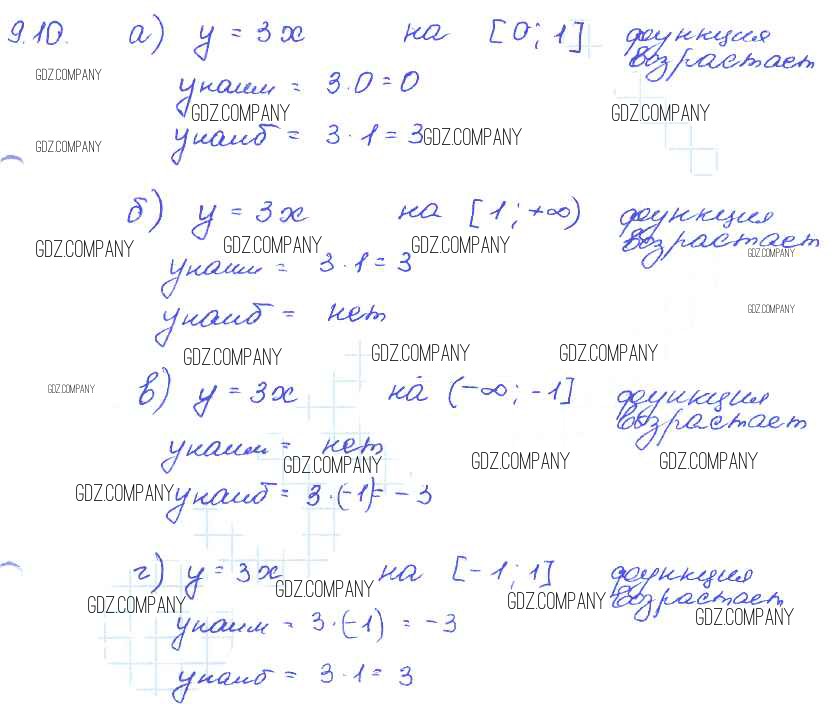 9.10. а) y = 3x на [0; 1] функция возрастает
GDZ.COMPANY
yнаим = 3·0 = 0
GDZ.COMPANY GDZ.COMPANY
yнаиб = 3·1 = 3 GDZ.COMPANY
GDZ.COMPANY
б) y = 3x на [1; +∞) функция возрастает
GDZ.COMPANY GDZ.COMPANY GDZ.COMPANY GDZ.COMPANY
yнаим = 3·1 = 3
yнаиб = нет
GDZ.COMPANY
GDZ.COMPANY GDZ.COMPANY GDZ.COMPANY
GDZ.COMPANY
в) y = 3x на (-∞; -1] функция возрастает
yнаим = нет
GDZ.COMPANY GDZ.COMPANY GDZ.COMPANY
GDZ.COMPANY yнаиб = 3·(-1) = -3
г) y = 3x на [-1; 1] функция возрастает
GDZ.COMPANY GDZ.COMPANY GDZ.COMPANY GDZ.COMPANY
yнаим = 3·(-1) = -3
yнаиб = 3·1 = 3